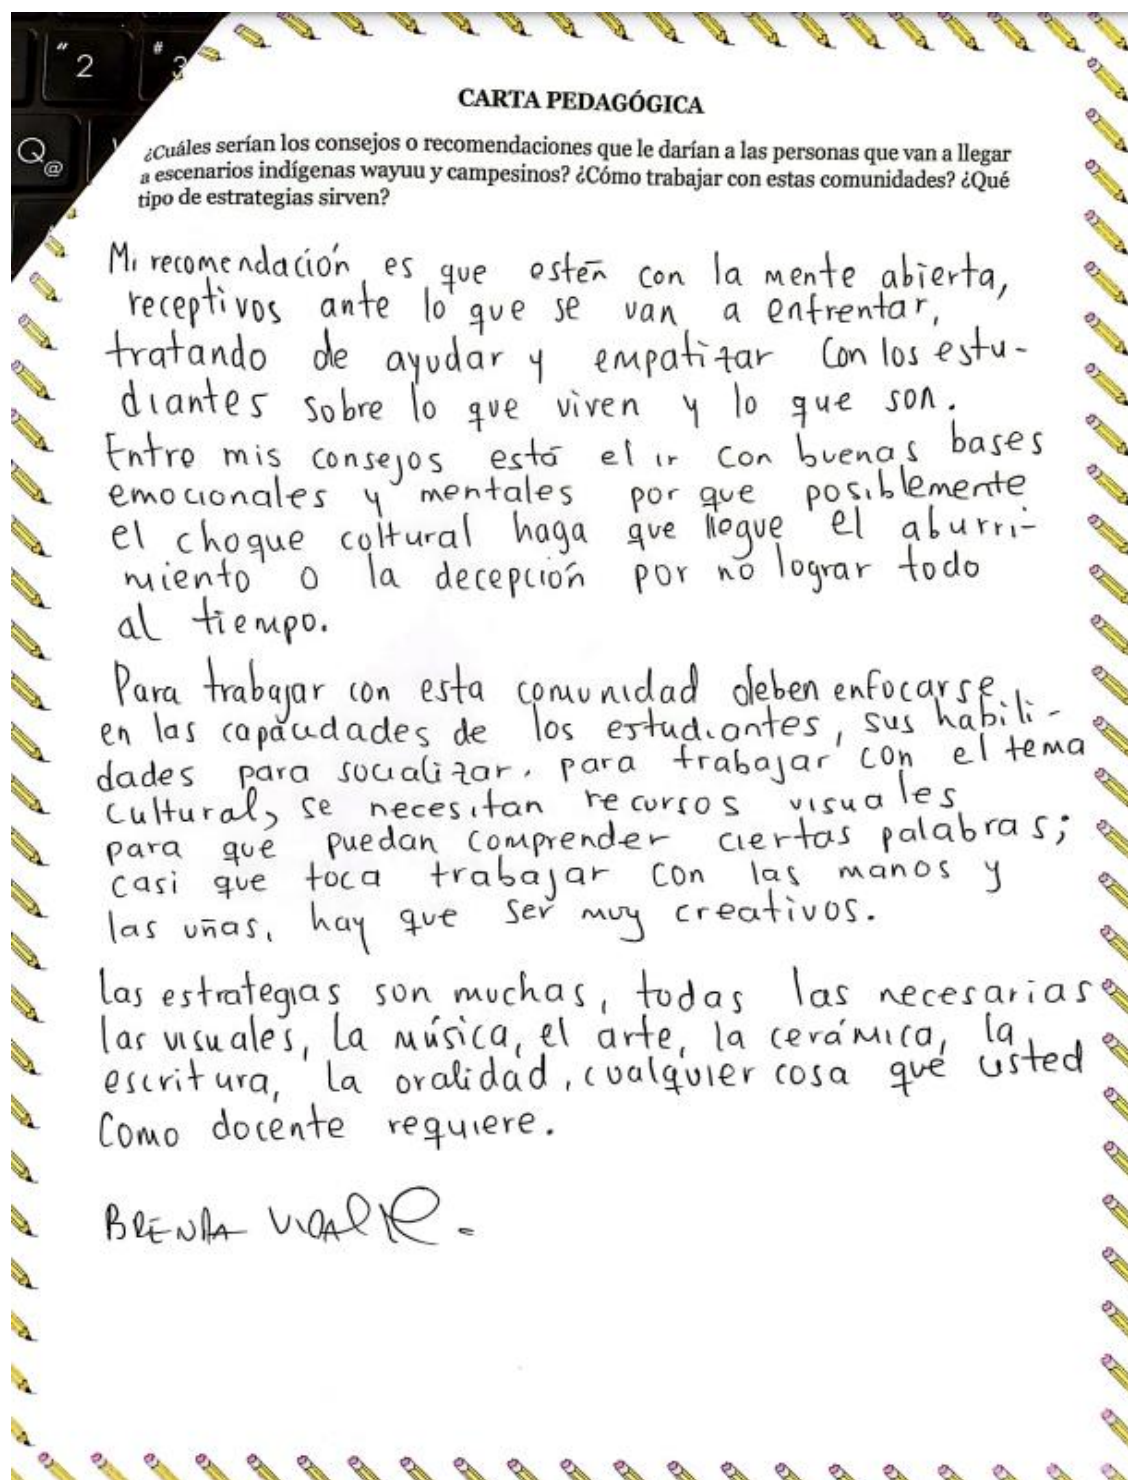 " 2 # 3
Q @
CARTA PEDAGÓGICA
¿Cuáles serían los consejos o recomendaciones que le darían a las personas que van a llegar
a escenarios indígenas wayuu y campesinos? ¿Cómo trabajar con estas comunidades? ¿Qué
tipo de estrategias sirven?
Mi recomendación es que estén con la mente abierta,
receptivos ante lo que se van a enfrentar,
tratando de ayudar y empatizar con los estu-
diantes sobre lo que viven y lo que son.
Entre mis consejos está el ir con buenas bases
emocionales y mentales por que posiblemente
el choque coltural haga que llegue el aburri-
miento o la decepción por no lograr todo
al tiempo.
Para trabajar con esta comunidad deben enfocarse
en las capacidades de los estudiantes, sus habili-
dades para socializar. para trabajar con el tema
cultural, se necesitan recursos visuales
para que puedan comprender ciertas palabras;
casi que toca trabajar con las manos y
las uñas, hay que ser muy creativos.
Las estrategias son muchas, todas las necesarias
las visuales, la música, el arte, la cerámica, la
escritura, la oralidad, cualquier cosa que usted
como docente requiere.
BRENDA VIDAL